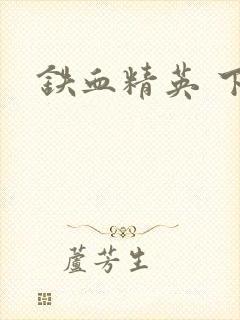 鉄血精英 下
蘆芳生